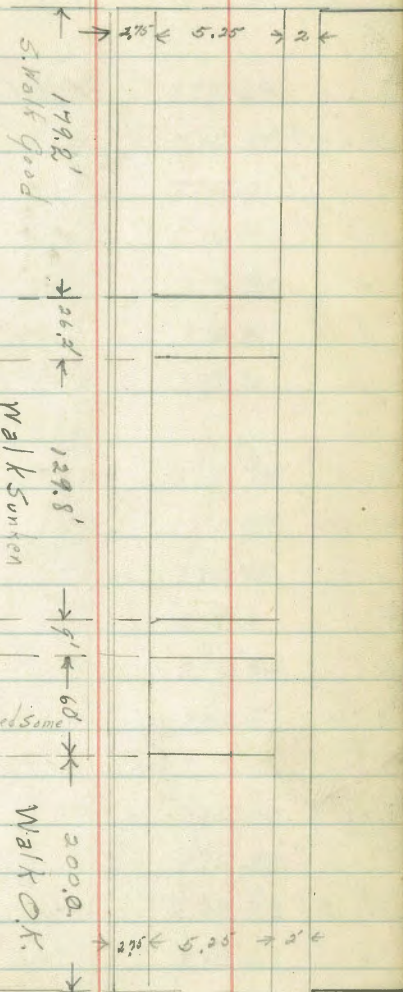 2.75 5.25 2
179.2'
S. Walk Good
26.2'
129.8'
Walk Sunken
9'
60'
ed Some
200.0
Walk O.K.
2.75 5.25 2'